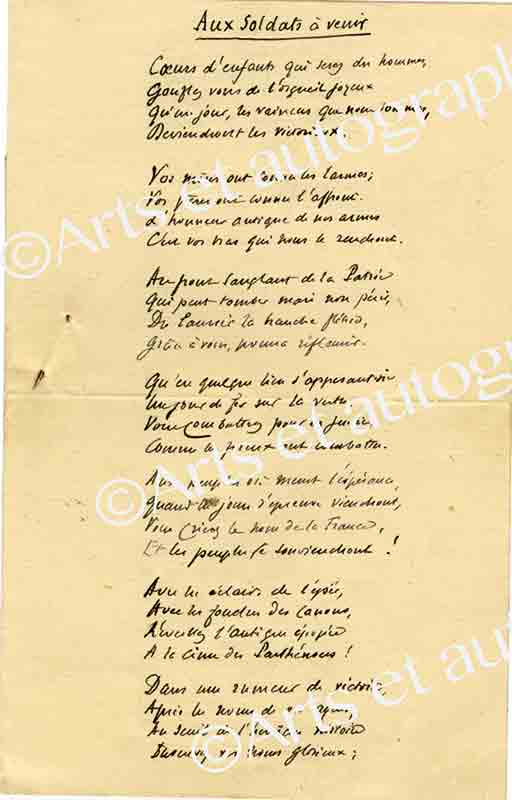 Aux Soldats à venir
Cœurs d'enfants qui serez des hommes,
Gonflez vous de l'orgueil joyeux
Qu'un jour, les vaincus que nous sommes,
Deviendront les victorieux.
Vos mères ont connu les larmes;
Vos pères ont connu l'affront.
L'honneur antique de nos armes
C'est vos bras qui nous le rendront.
Au front sanglant de la Patrie
Qui peut tomber mais non périr,
Du laurier la branche flétrie,
Grâce à vous, pourra refleurir.
Qu'en quelque lieu
Un jour de fer sur la vertu.
Vous combattrez pour
Comme les preux ont combattu.
Aux peuples où meurt l'espérance,
Quand les jours d'épreuve viendront,
Vous crierez le nom de la France,
Et les peuples se souviendront !
Avec les éclairs de l'épée,
Avec les foudres des canons,
Réveillez l'antique épopée
A la cime des Parthénons !
Dans une rumeur de victoire,
Après les noms de
Au seuil de l'histoire
vos noms glorieux;
©Arts et autographes
©Arts et autographes
©Arts et autographes